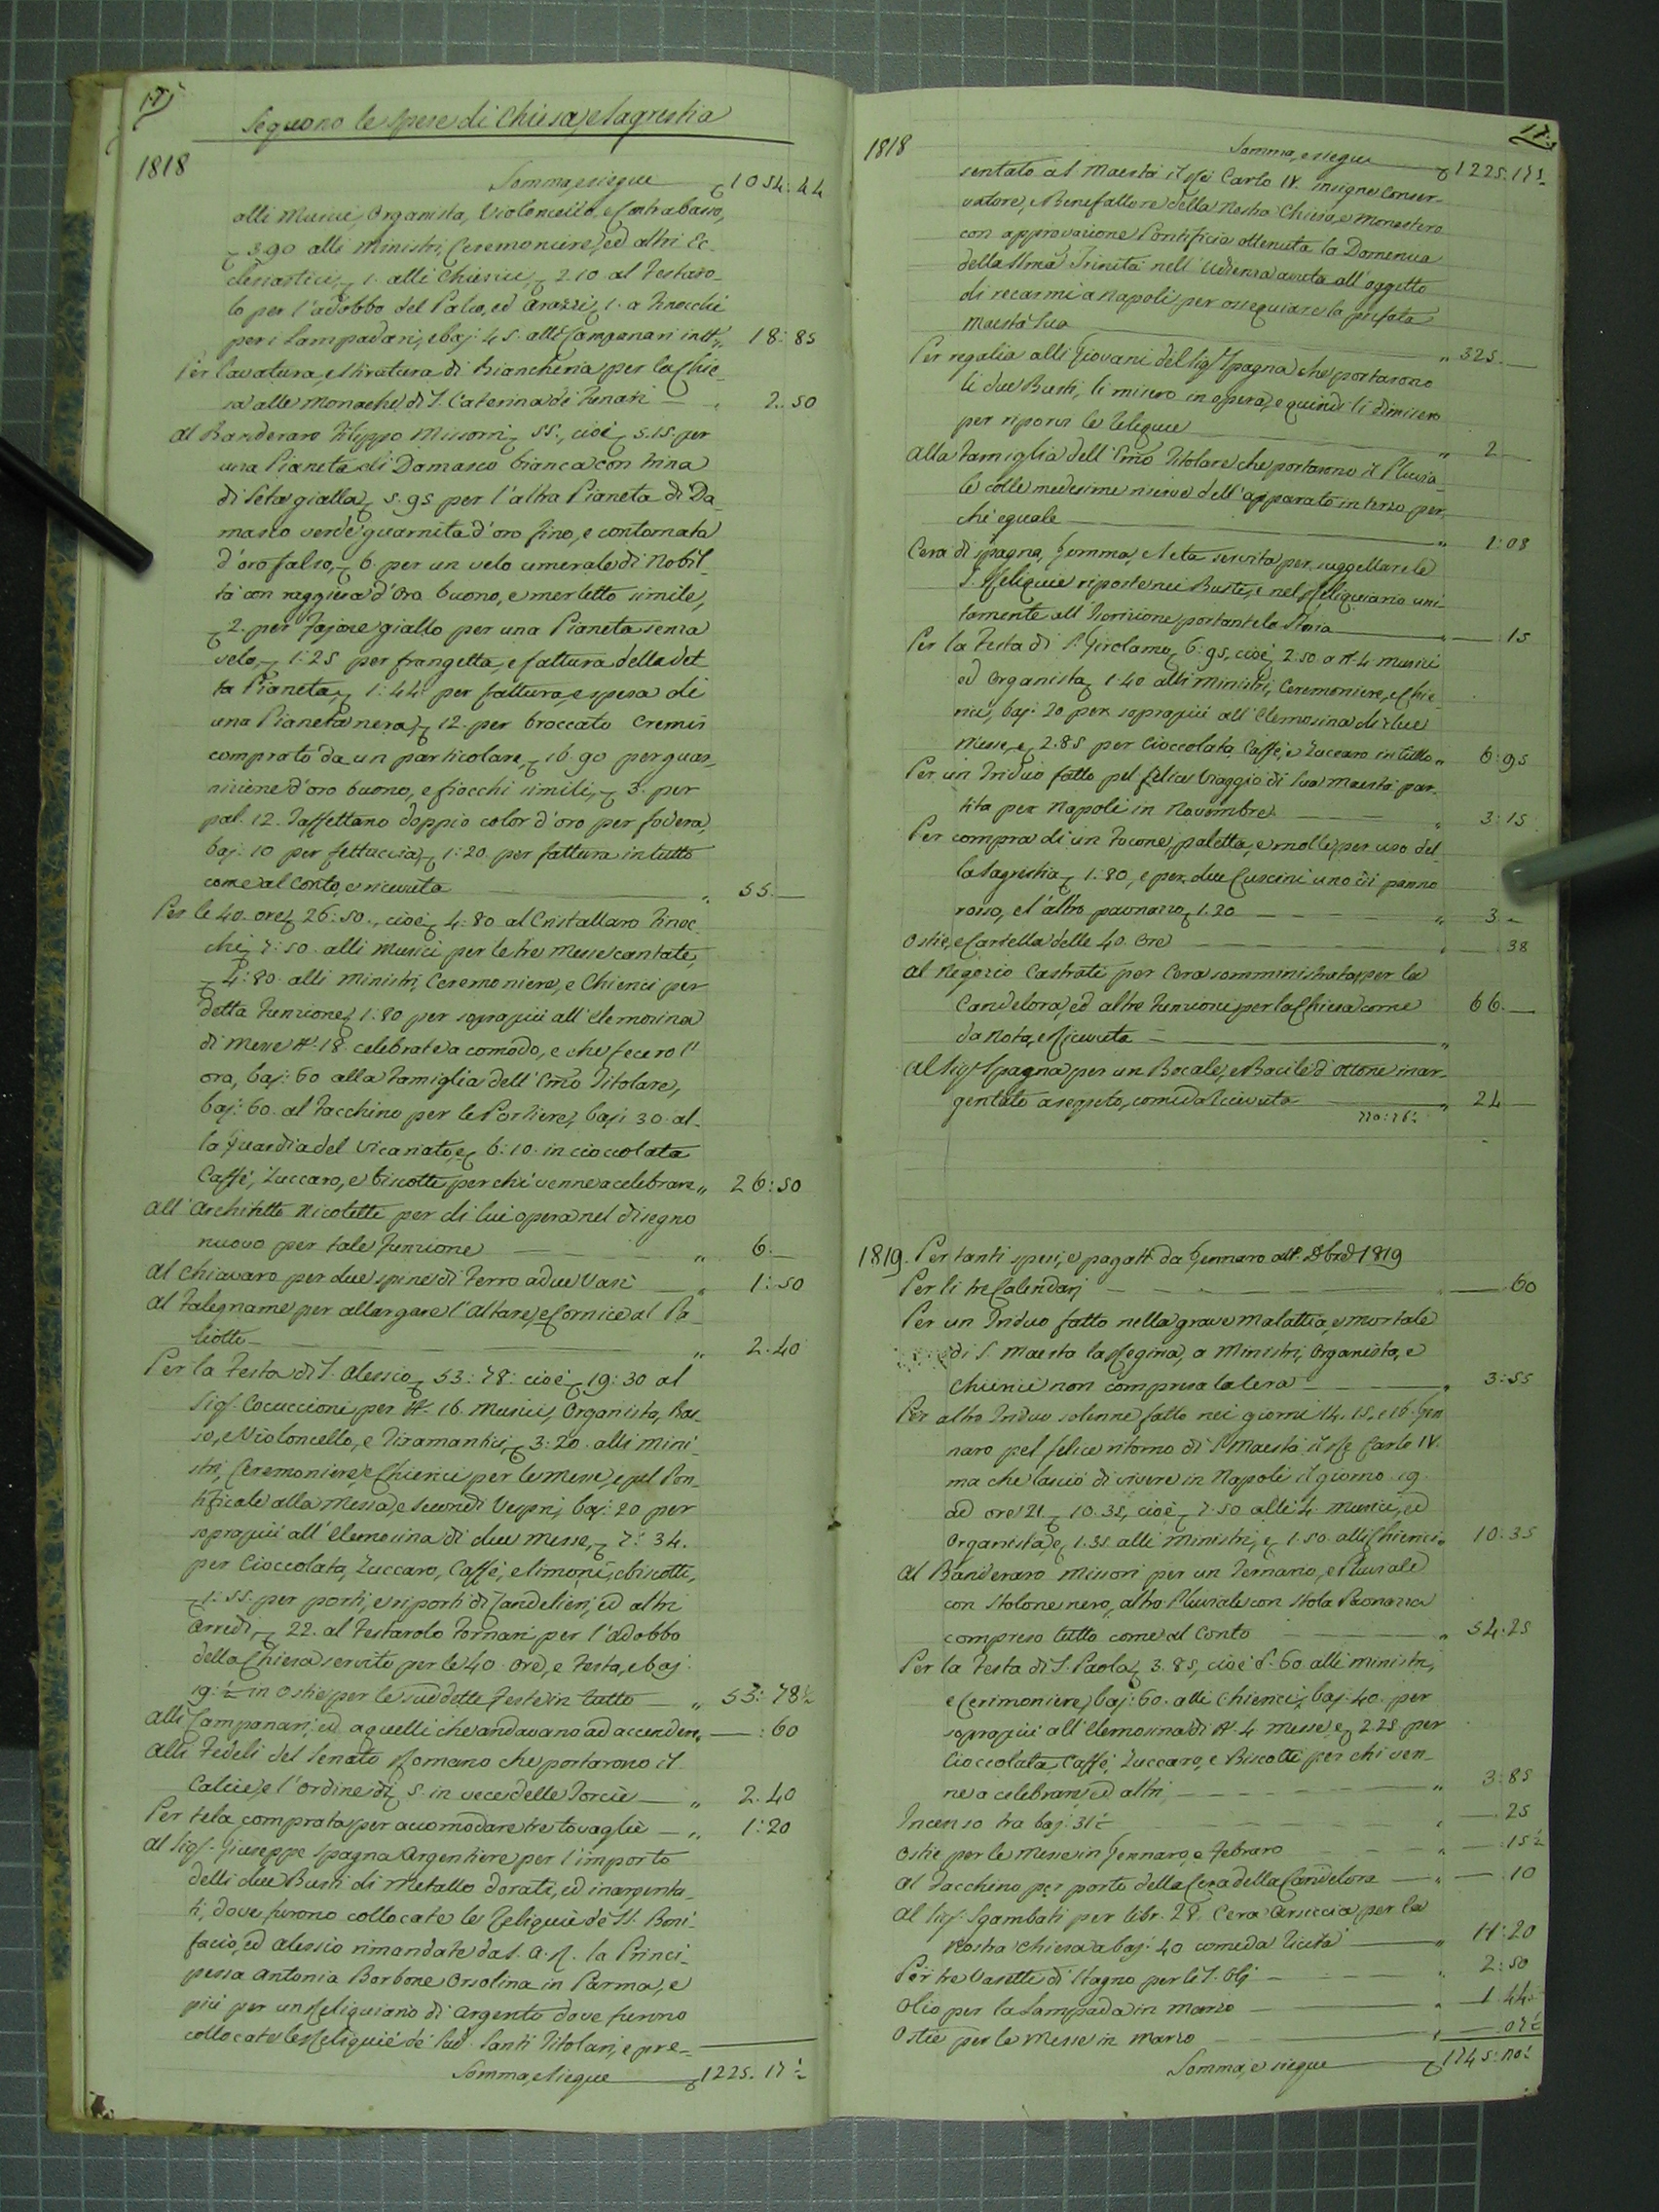 17
Seguono le spese di Chiesa, e Sagrestia
1818
Somma, e siegue 1054:44
alli Musici, Organista, Violoncello, e Contrabasso,
3.90 alli Ministri, Ceremoniere, ed altri Ec-
clesiastici, 1. alli Chierici, 2.10 al Festaro-
lo per l'adobbo del Palco, ed Arazzi, 1. a Finocchi
per i Lampadari, e baj: 45. alli Campanari in tt° 18:85
Per lavatura, e stiratura di Biancheria per la Chie-
sa alle Monache di S. Caterina de Funari 2.50
Al Banderaro Filippo Missorri 55., cioè 5.15. per
una Pianeta di Damasco bianca con trina
di Seta gialla, 5.95 per l'altra Pianeta di Da-
masco verde guarnita d'oro fino, e contornata
d'oro falso, 6. per un velo umerale di Nobil-
tà con raggiera d'Oro buono, e merletto simile,
2. per Fajone giallo per una Pianeta senza
velo, 1:25 per frangetta, e fattura della det-
ta Pianeta, 1:44 per fattura, e spesa di
una Pianeta nera, 12. per broccato Cremisi
comprato da un particolare, 16.90 per guar-
nizione d'oro buono, e fiocchi simili, 3. per
pal. 12. Taffettano doppio color d'oro per fodera,
baj: 10 per fettuccia, 1:20 per fattura in tutto
come al Conto, e ricevuta 55.
Per le 40. ore 26:50., cioè 4:80 al Cristallaro Finoc-
chi 7:50. alli Musici per le tre Messe cantate,
4:80. alli Ministri, Ceremoniere, e Chierici per
detta Funzione, 1:80 per soprapiù all'elemosina
di Messe N. 18 celebrate a comodo, e che fecero l'
ora, baj: 60 alla Famiglia dell'Emo Titolare,
baj: 60. al Facchino per le Portiere, baj: 30. al-
la Guardia del Vicariato, e 6:10. in cioccolata
Caffè, Zuccaro, e biscotti per chi venne a celebrare 26:50
All'Architetto Nicoletti per di lui opera nel disegno
nuovo per tale Funzione 6.
Al Chiavaro per due spine di Ferro a due Vasi 1:50
Al Falegname per allargare l'Altare, e Cornice al Pa-
liotto 2.40
Per la Festa di S. Alessio 53:78: cioè 19:30 al
Sig. Cocuccioni per N. 16 Musici, Organista, Bas-
so, e Violoncello, e Tiramantici, 3:20. alli Mini-
stri, Ceremoniere, e Chierici per le Messe, e pel Pon-
tificale alla Messa, e Secondi Vespri, baj: 20 per
soprapiù all'elemosina di due Messe, 7:34.
per Cioccolata, Zuccaro, Caffè, e limoni, e biscotti,
1:55. per porti, e riporti di Candelieri, ed altri
Arredi, 22. al Festarolo Fornari per l'adobbo
della Chiesa servito per le 40. Ore, e Festa, e baj:
19:½ in Ostie per le suddette Feste in tutto 53:78½
Alli Campanari, ed a quelli che andavano ad accendere :60
Alli Fedeli del Senato Romano che portarono il
Calice, e l'Ordine di 5. in vece delle Torcie 2.40
Per tela comprata per accomodare tre tovaglie 1:20
Al Sig. Giuseppe Spagna Argentiere per l'importo
delli due Busti di Metallo dorati, ed inargenta-
ti, dove furono collocate le Reliquie de SS. Boni-
facio, ed Alessio rimandate da S. A. R. la Princi-
pessa Antonia Borbone Orsolina in Parma, e
più per un Reliquiario di Argento dove furono
collocate le Reliquie de' sud. Santi Titolari, e pre-
Somma, e siegue 1225.17½
17.
1818
Somma, e siegue 1225.17½
sentato a S. Maestà il Re Carlo IV. insigne Conser-
vatore, e Benefattore della Nostra Chiesa, e Monastero
con approvazione Pontificia ottenuta la Domenica
della SSma Trinità nell'Udienza avuta all'oggetto
di recarmi a Napoli per ossequiare la prefata
Maestà Sua 325.
Per regalia alli Giovani del Sig. Spagna che portarono
li due Busti, li misero in opera, e quindi li dimisero
per riporvi le Reliquie 2
Alla Famiglia dell'Emo Titolare che portarono il Pluvia-
le colle medesime riserve dell'apparato in terzo, per-
chè eguale 1:08
Cera di spagna, Gomma, e Seta servita per suggellare le
S. Reliquie riposte nei Busti, e nel Reliquiario uni-
tamente all'Iscrizione portante la Storia 15
Per la Festa di S. Girolamo 6:95, cioè 2.50 a N. 4 Musici
ed Organista, 1.40 alli Ministri, Ceremoniere, e Chie-
rici, baj: 20 per soprapiù all'elemosina di due
Messe, e 2.85 per Cioccolata, Caffè, e Zuccaro in tutto 6:95
Per un Triduo fatto pel felice Viaggio di Sua Maestà par-
tita per Napoli in Novembre 3:15
Per compra di un Focone, paletta, e molle per uso del-
la Sagrestia 1:80, e per due Cuscini uno di panno
rosso, e l'altro paonazzo, 1.20 3
Ostie, e Cartella delle 40. Ore 38
Al Negozio Castrati per Cera somministrata per la
Candelora, ed altre Funzioni per la Chiesa come 66.
da Nota, e Ricevuta
Al Sig. Spagna per un Bocale, e Bacile d'Ottone inar-
gentato a seguito, come da ricevuta 24
1819. Per tanti spesi, e pagati da Gennaro all. Xbre 1819
Per li tre Calendarj 60
Per un Triduo fatto nella grave Malattia, e mortale
di S. Maestà la Regina, a Ministri, Organista, e
Chierici non compresa la Cera 3:55
Per altro Triduo solenne fatto nei giorni 14. 15. e 16. Gen-
naro pel felice ritorno di S. Maestà il Re Carlo IV.
ma che lasciò di vivere in Napoli il giorno 19.
ad ore 21. 10.35, cioè 7.50 alli 4. Musici, ed
Organista, e 1.35 alli Ministri, e 1.50. alli Chierici 10:35
Al Banderaro Missori per un Ternario, e Pluviale
con Stolone nero, altro Pluviale con Stola Paonazza
compreso tutto come al Conto 54.25
Per la Festa di S. Paola 3.85, cioè :60 alli Ministri,
e Cerimoniere, baj: 60. alli Chierici, baj: 40. per
soprapiù all'elemosina di N. 4 Messe, e 2.25 per
Cioccolata, Caffè, Zuccaro, e Biscotti per chi ven-
ne a celebrare, ed altri 3:85
Incenso tra baj: 31½ .25
Ostie per le Messe in Gennaro, e Febraro :15½
Al Facchino per porto della Cera della Candelora 10
Al Sig. Sgambati per libr. 28. Cera Arsiccia per la
Nostra Chiesa a baj: 40 come da Riceta 11:20
Per tre Vasetti di Stagno per li S. Olj 2:50
Olio per la Lampada in Marzo 1.44
Ostie per le Messe in Marzo 07½
Somma, e siegue